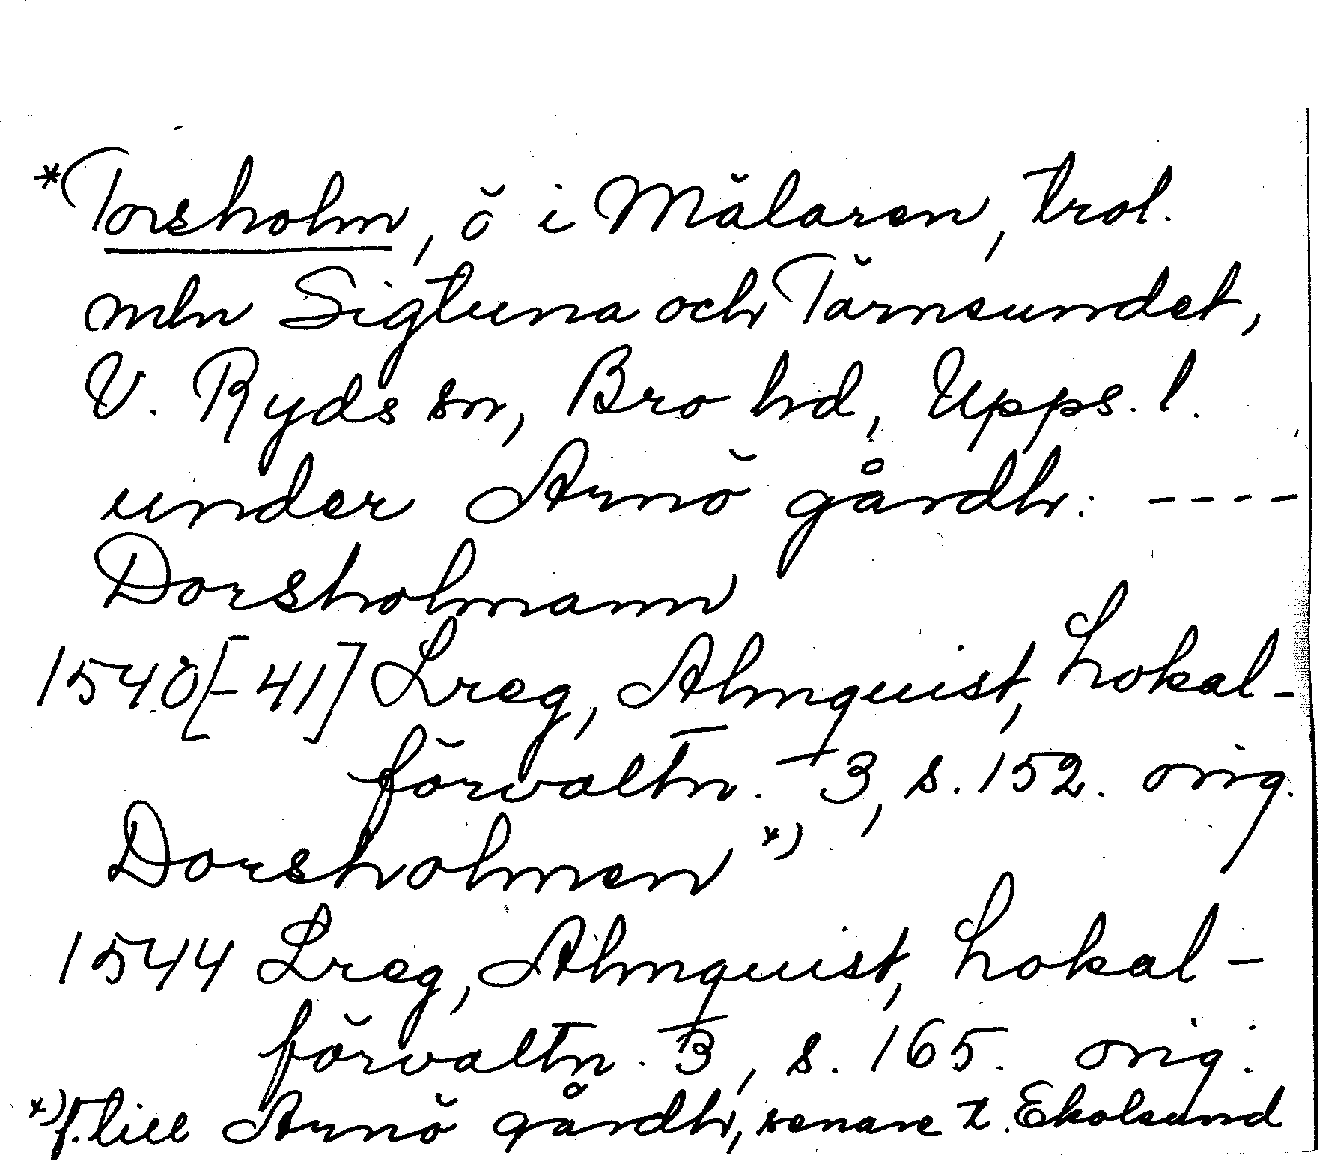 *Torsholm, ö i Mälaren, trol.
mln Sigtuna och Tärnsundet,
V. Ryds sn, Bro hd, Upps. l.
under Arnö gårdh: ----
Dorsholmann
1540[-41] Lreg, Almquist, Lokal-
förvaltn. 3, s. 152. orig.
Dorsholmen *)
1544 Lreg, Almquist, Lokal-
förvaltn. 3, s. 165. orig.
*) f. till Arnö gårdh, senare t. Ekolsund